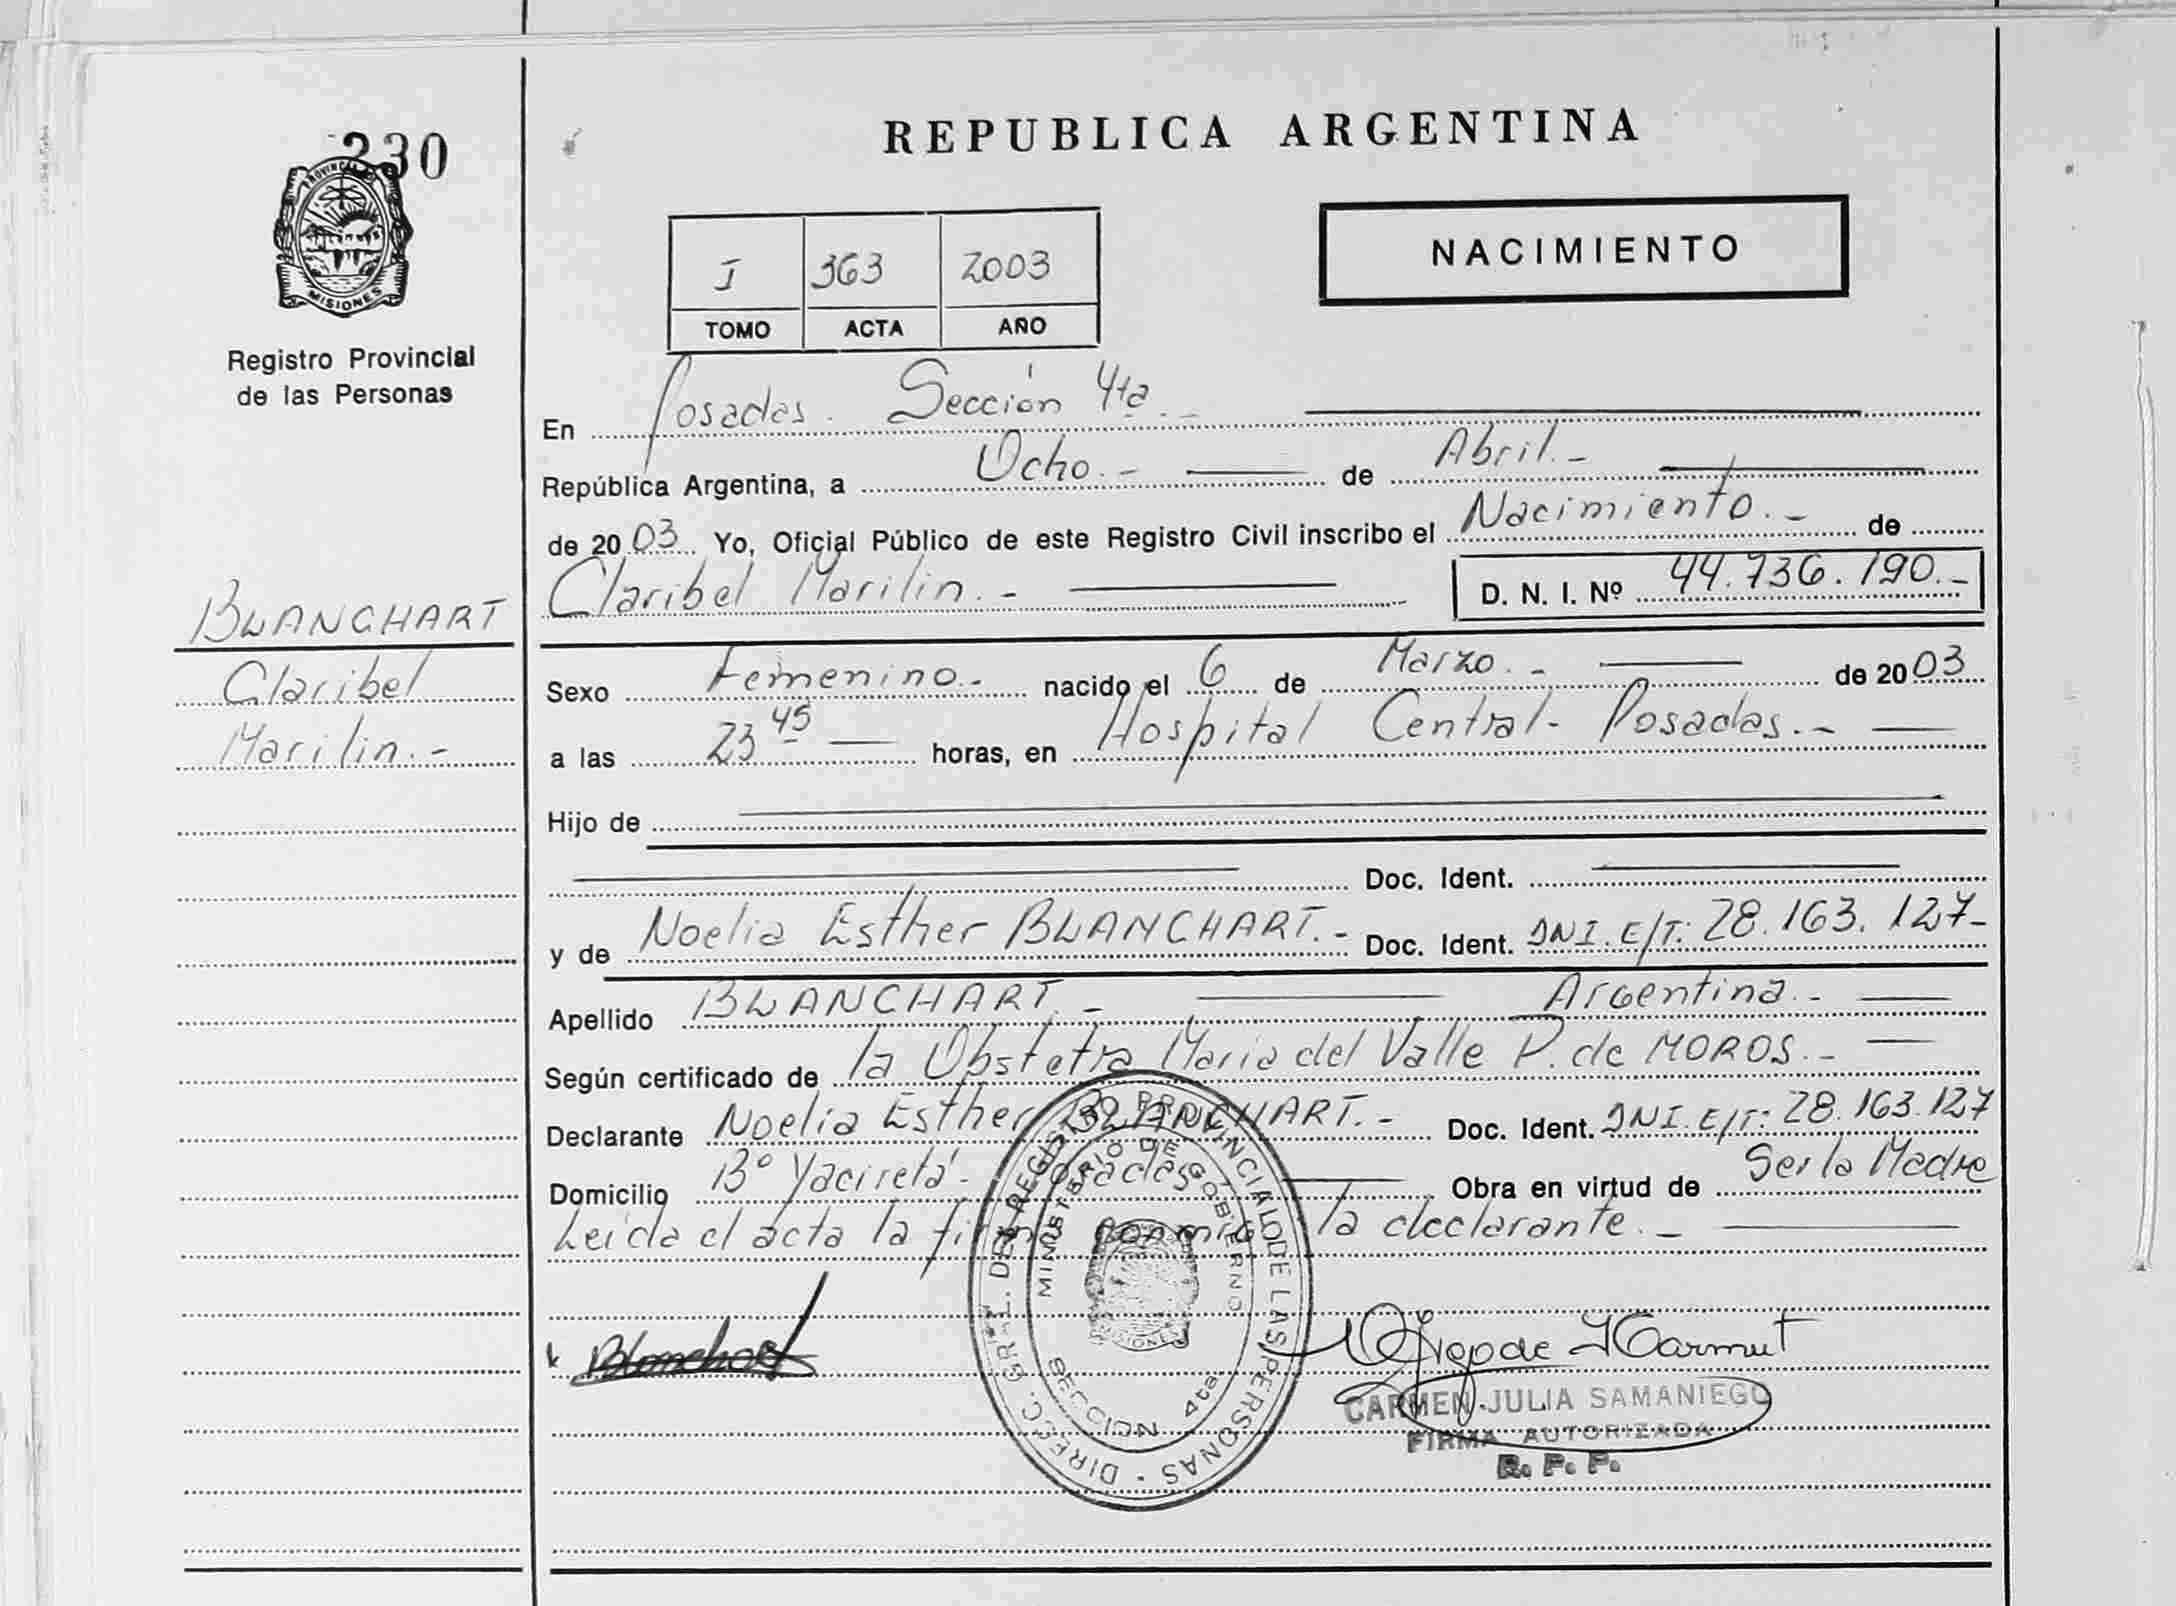 230
PROVINCIA DE
MISIONES
Registro Provincial
de las Personas
REPUBLICA ARGENTINA
NACIMIENTO
I 363 2003
TOMO ACTA AÑO
En Posadas. Sección 4ta.-
República Argentina, a Ocho.- de Abril.-
de 2003 Yo, Oficial Público de este Registro Civil inscribo el Nacimiento.- de
Claribel Marilin.- D. N. I. Nº 44.736.190.-
BLANCHART
Claribel
Marilin.-
Sexo Femenino.- nacido el 6 de Marzo.- de 2003
a las 23 45 horas, en Hospital Central- Posadas.-
Hijo de
Doc. Ident.
y de Noelia Esther BLANCHART.- Doc. Ident. DNI. E/T: 28.163.127-
Apellido BLANCHART.- Argentina.-
Según certificado de la Obstetra Maria del Valle P. de MOROS.-
Declarante Noelia Esther BLANCHART.- Doc. Ident. DNI. E/T: 28.163.127
Domicilio Bº Yacireta'- Posadas Obra en virtud de Ser la Madre
Leida el acta la firma conmigo la declarante.-
Blanchart
DIREC. GRAL. DEL REGISTRO PROVINCIAL DE LAS PERSONAS
MINISTERIO DE GOBIERNO
MISIONES
SECCION 4ta
CARMEN JULIA SAMANIEGO
FIRMA AUTORIZADA
R. P. P.